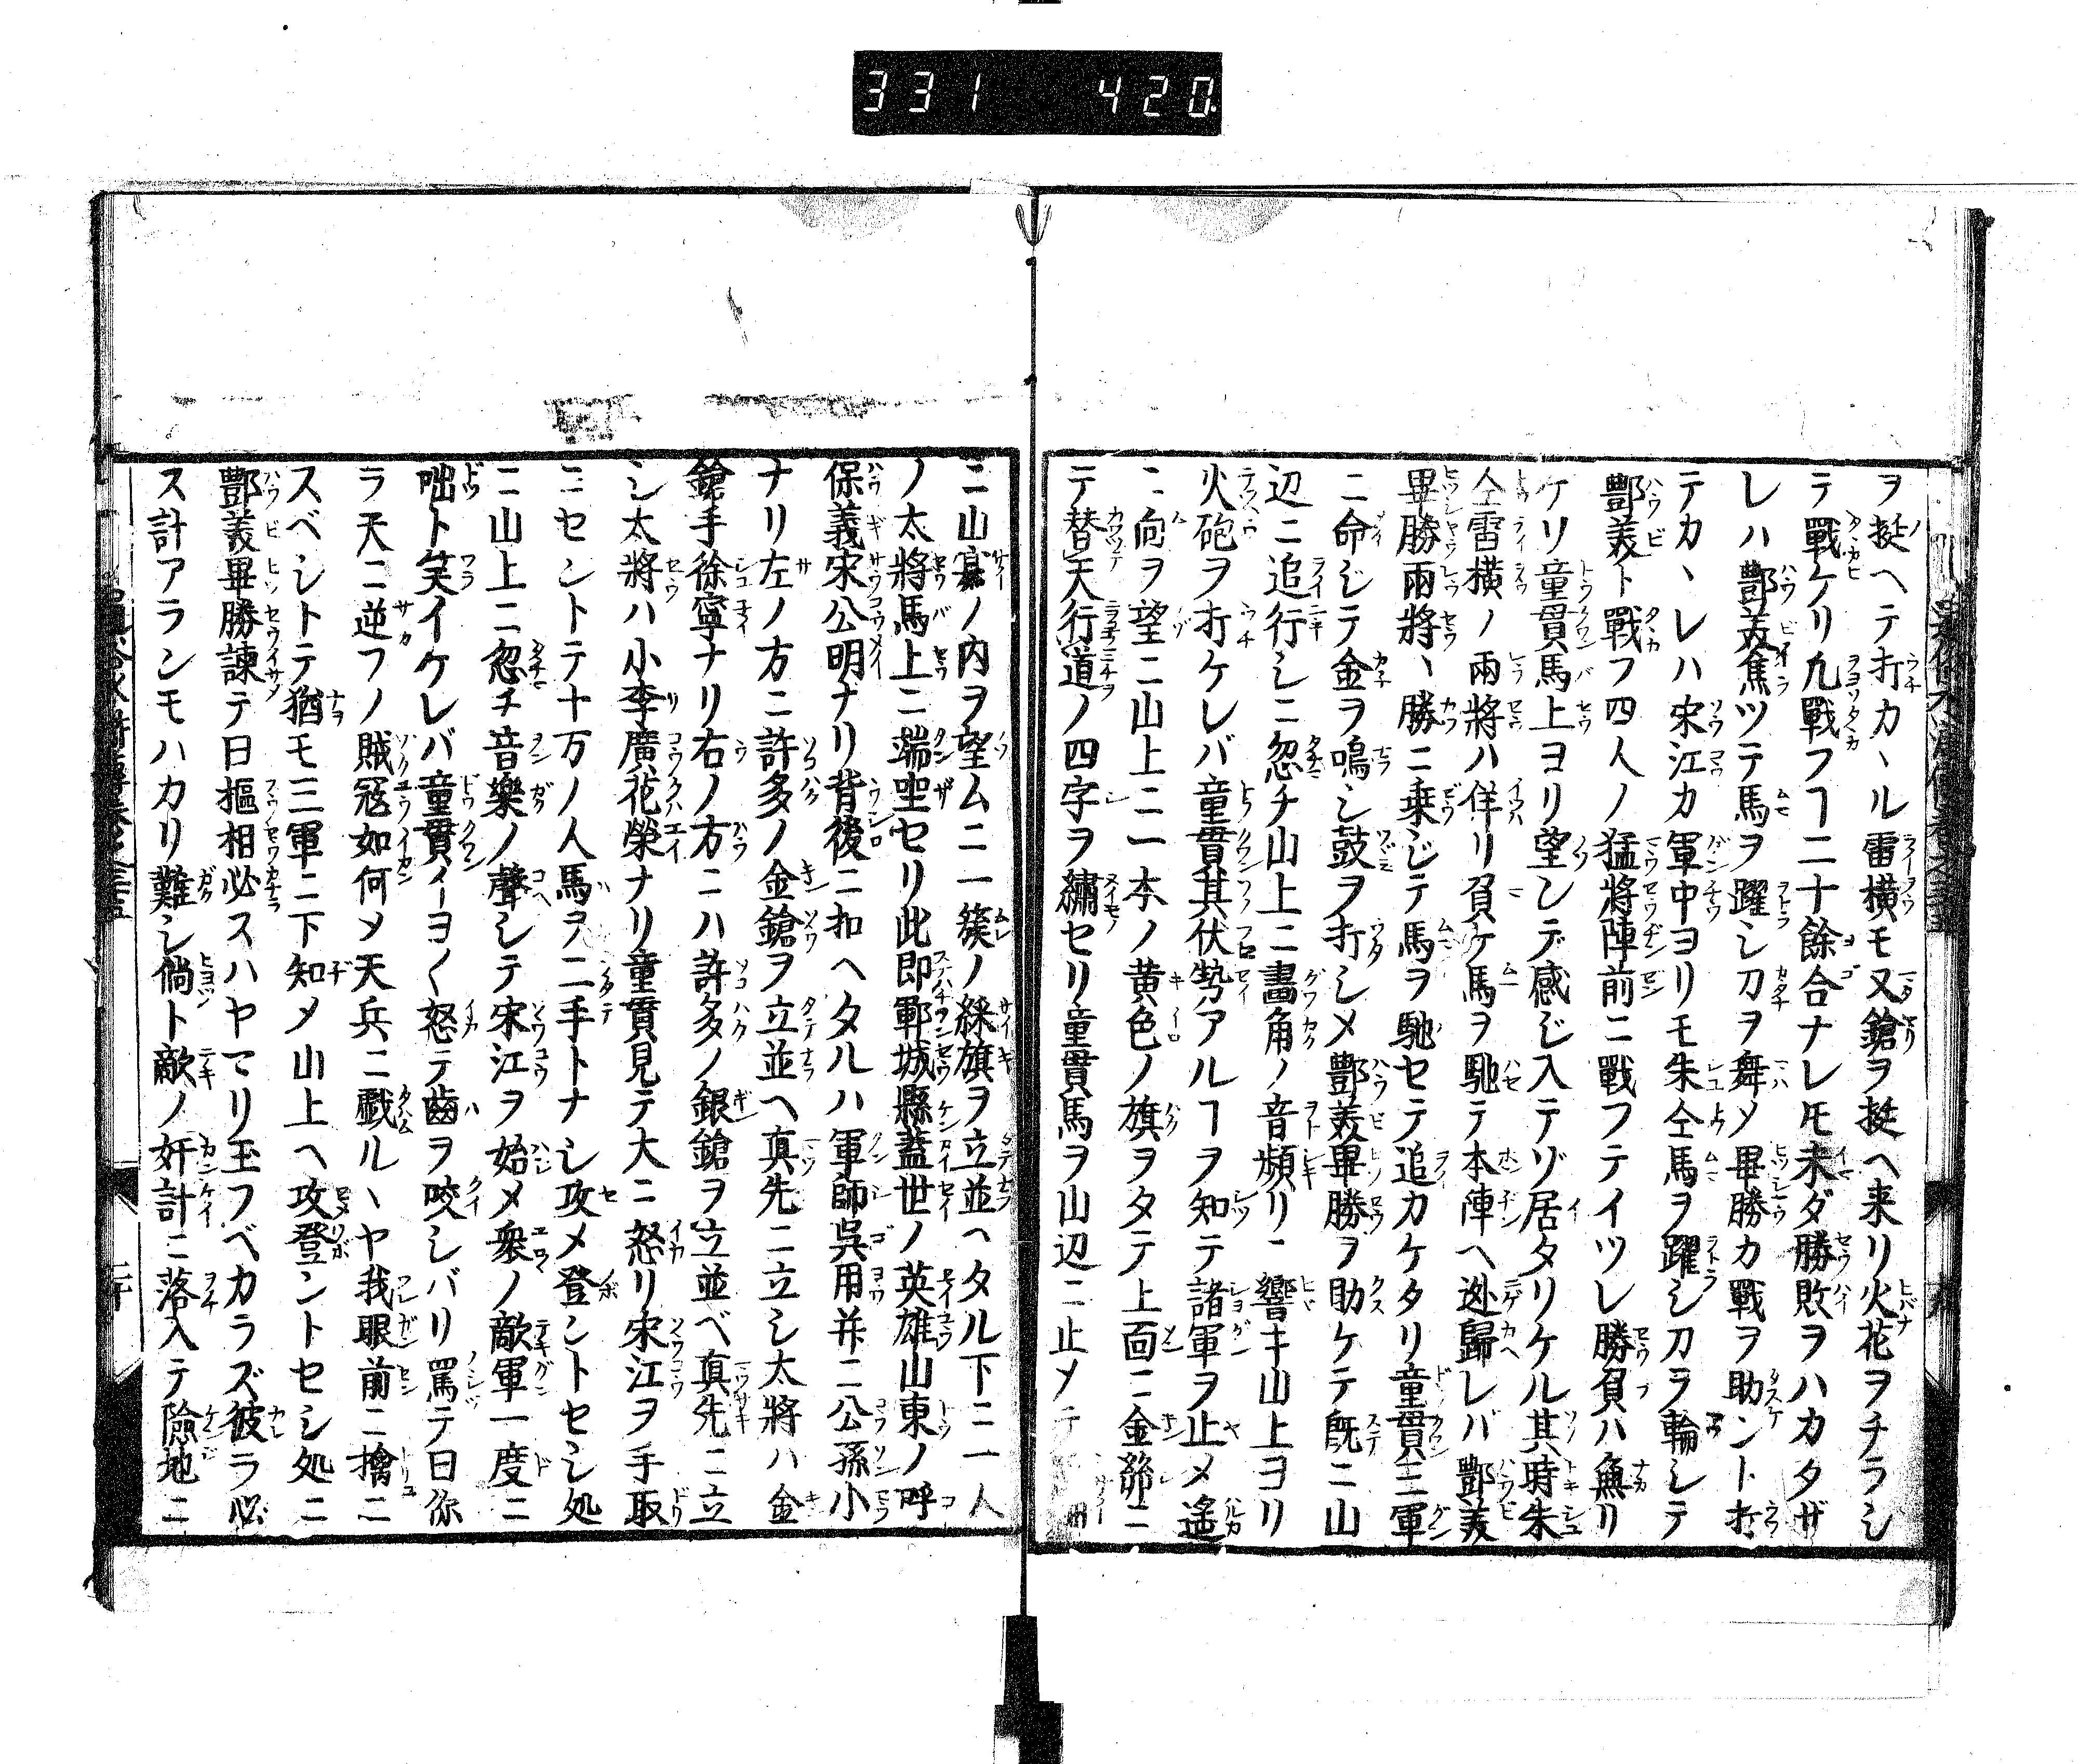 331 420
ヲ挺ヘテ打カヽル雷横モ又鎗ヲ挺ヘ来リ火花ヲチラシ
テ戰ケリ凡戰フヿ二十餘合ナレモ未ダ勝敗ヲハカタザ
レハ酆美焦ツテ馬ヲ躍シ刀ヲ舞メ畢勝カ戰ヲ助ント打
テカヽレハ宋江カ軍中ヨリモ朱仝馬ヲ躍シ刀ヲ輪シテ
酆美ト戰フ四人ノ猛將陣前ニ戰フテイツレ勝負ハ魚リ
ケリ童貫馬上ヨリ望シデ感ジ入テゾ居タリケル其時朱
仝雷横ノ兩將ハ佯リ負ケ馬ヲ馳テ本陣ヘ迯歸レバ酆美
畢勝兩將ヽ勝ニ乗ジテ馬ヲ馳セテ追カケタリ童貫三軍
ニ命ジテ金ヲ鳴シ鼓ヲ打シメ酆美畢勝ヲ助ケテ既ニ山
辺ニ追行シニ忽チ山上ニ畫角ノ音頻リニ響キ山上ヨリ
火砲ヲ打ケレバ童貫其伏勢アルヿヲ知テ諸軍ヲ止メ遙
ニ向ヲ望ニ山上ニ一本ノ黄色ノ旗ヲタテ上面ニ金絲ニ
テ替天行道ノ四字ヲ繡セリ童貫馬ヲ山辺ニ止メテ
ニ山寨ノ内ヲ望ムニ一簇ノ綵旗ヲ立並ヘタル下ニ一人
ノ太將馬上ニ端坐セリ此即鄆城縣蓋世ノ英雄山東ノ呼
保義宋公明ナリ背後ニ扣ヘタルハ軍師吳用并ニ公孫小
ナリ左ノ方ニ許多ノ金鎗ヲ立並ヘ真先ニ立シ太將ハ金
鎗手徐寧ナリ右ノ方ニハ許多ノ銀鎗ヲ立並ベ真先ニ立
シ太將ハ小李廣花榮ナリ童貫見テ大ニ怒リ宋江ヲ手取
ニセントテ十万ノ人馬ヲ二手トナシ攻メ登ントセシ処
ニ山上ニ忽チ音樂ノ聲シテ宋江ヲ始メ衆ノ敵軍一度ニ
咄ト笑イケレバ童貫イヨ〱怒テ齒ヲ咬シバリ罵テ曰你
ラ天ニ逆フノ賊冦如何メ天兵ニ戲ルヽヤ我眼前ニ擒ニ
スベシトテ猶モ三軍ニ下知メ山上ヘ攻登ントセシ処ニ
酆美畢勝諫テ曰樞相必スハヤマリ玉フベカラズ彼ラ必
ス計アランモハカリ難シ倘ト敵ノ奸計ニ落入テ險地ニ